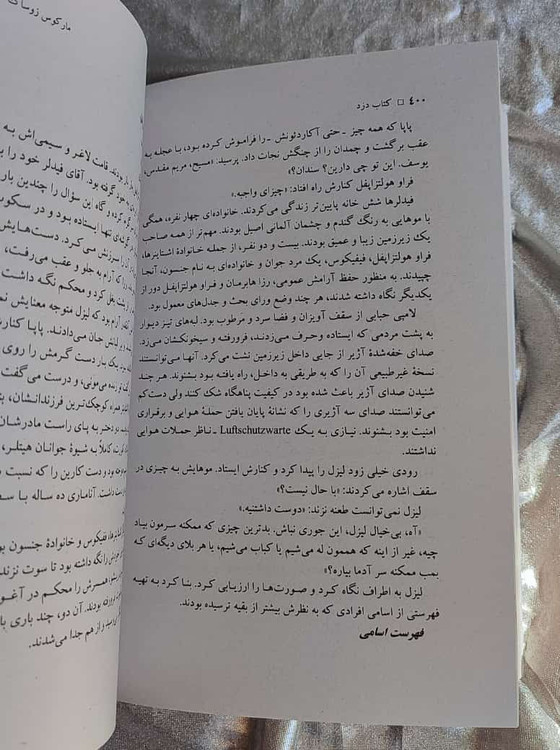 ۴۰۰ □ کتاب دزد
پاپا که همه چیز ـ حتی آکاردئونش ـ را فراموش کرده بود، با عجله به
عقب برگشت و چمدان را از چنگش نجات داد. پرسید: «مسیح، مریم مقدس،
یوسف. این تو چی دارین؟ سندان؟»
فراو هولتزاپفل کنارش راه افتاد: «چیزای واجبه.»
فیدلرها شش خانه پایین‌تر زندگی می‌کردند. خانواده‌ای چهار نفره، همگی
با موهایی به رنگ گندم و چشمان آلمانی اصیل بودند. مهم‌تر از همه صاحب
یک زیرزمین زیبا و عمیق بودند. بیست و دو نفر، از جمله خانوادهٔ اشتاینرها،
فراو هولتزاپفل، فیفیکوس، یک مرد جوان و خانواده‌ای به نام جنسون، آنجا
چپیدند. به منظور حفظ آرامش عمومی، رزا هابرمان و فراو هولتزاپفل دور از
یکدیگر نگاه داشته شدند، هر چند وضع ورای بحث و جدل‌های معمول بود.
لامپی حبابی از سقف آویزان و فضا سرد و مرطوب بود. لبه‌های تیز دیوار
به پشت مردمی که ایستاده وحرف می‌زدند، فرورفته و سیخونکشان می‌زد.
صدای خفه‌شدهٔ آژیر از جایی داخل زیرزمین نشت می‌کرد. آنها می‌توانستند
نسخهٔ غیرطبیعی آن را که به طریقی به داخل، راه یافته بود بشنوند. هر چند
شنیدن صدای آژیر باعث شده بود در کیفیت پناهگاه شک کنند ولی دست‌کم
می‌توانستند صدای سه آژیری را که نشانهٔ پایان یافتن حملهٔ هوایی و برقراری
امنیت بود بشنوند. نیازی به یک Luftschutzwarte ـ ناظر حملات هوایی
نداشتند.
رودی خیلی زود لیزل را پیدا کرد و کنارش ایستاد. موهایش به چیزی در
سقف اشاره می‌کردند: «با حال نیست؟»
لیزل نمی‌توانست طعنه نزند: «دوست داشتنیه.»
«آه، بی‌خیال لیزل، این جوری نباش. بدترین چیزی که ممکنه سرمون بیاد
چیه، غیر از اینه که هممون له می‌شیم یا کباب می‌شیم، یا هر بلای دیگه‌ای که
بمب ممکنه سر آدما بیاره؟»
لیزل به اطراف نگاه کرد و صورت‌ها را ارزیابی کرد. بنا کرد به تهیه
فهرستی از اسامی افرادی که به نظرش بیشتر از بقیه ترسیده بودند.
فهرست اسامی
مارکوس زوساک
قامت لاغر و سیمی‌اش به
خود گرفته بود. آقای فیدلر خود را
کرده و گاه این سؤال را چندین بار
تنها ایستاده بود و در سکوت
سرزنش می‌کرد. دست‌هایش
را که آرام به جلو و عقب می‌رفت،
پشت بغل کرد و محکم نگه داشت
آرام بود که لیزل متوجه معنایش
جان می‌دادند. پاپا کنارش
یک بار دست گرمش را روی
زنده می‌مونی، و درست می‌گفت
کوچک‌ترین فرزندانشان،
دختر به پای راست مادرشان
کاملاً به شیوهٔ جوانان هیتلر،
بود و دست کارین را که نسبت
دست داشت. آناماری ده ساله با
فیفیکوس و خانوادهٔ جنسون
را نگه داشته بود تا سوت نزند
همسرش را محکم در آغوش
بودند. آن دو، چند باری با
و از هم جدا می‌شدند.